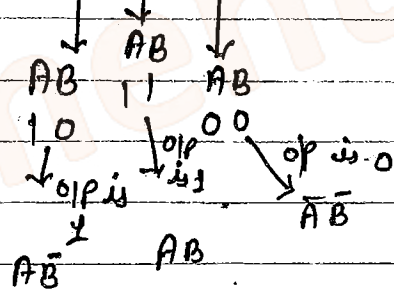 AB
AB AB
1 1
1 0 0 0
o/p is 1
o/p is 1
o/p is 0
A̅ B̅
AB̅
AB